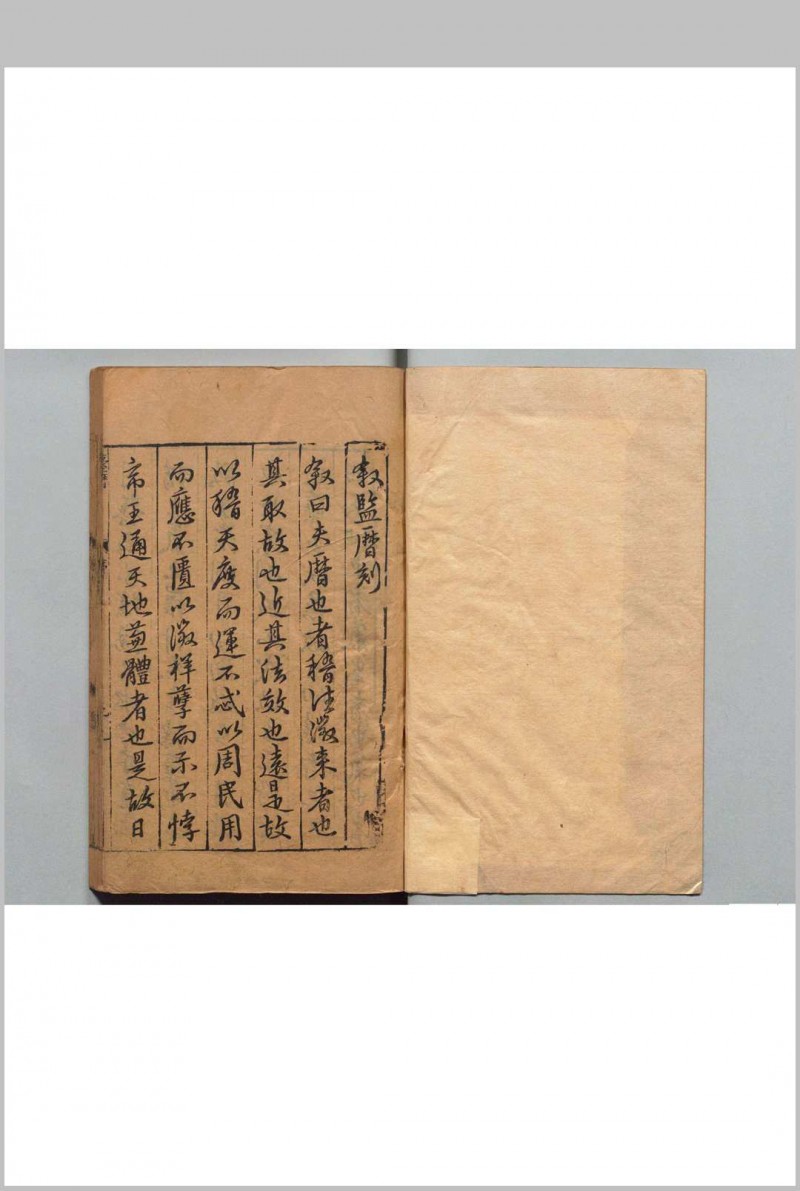 敘監曆刻
敘曰夫曆也者稽往徵来者也
其取故也近其法效也遠是故
以稽天度而運不忒以周民用
而應不匱以徵祥孽而示不悖
帝王通天地兼體者也是故日